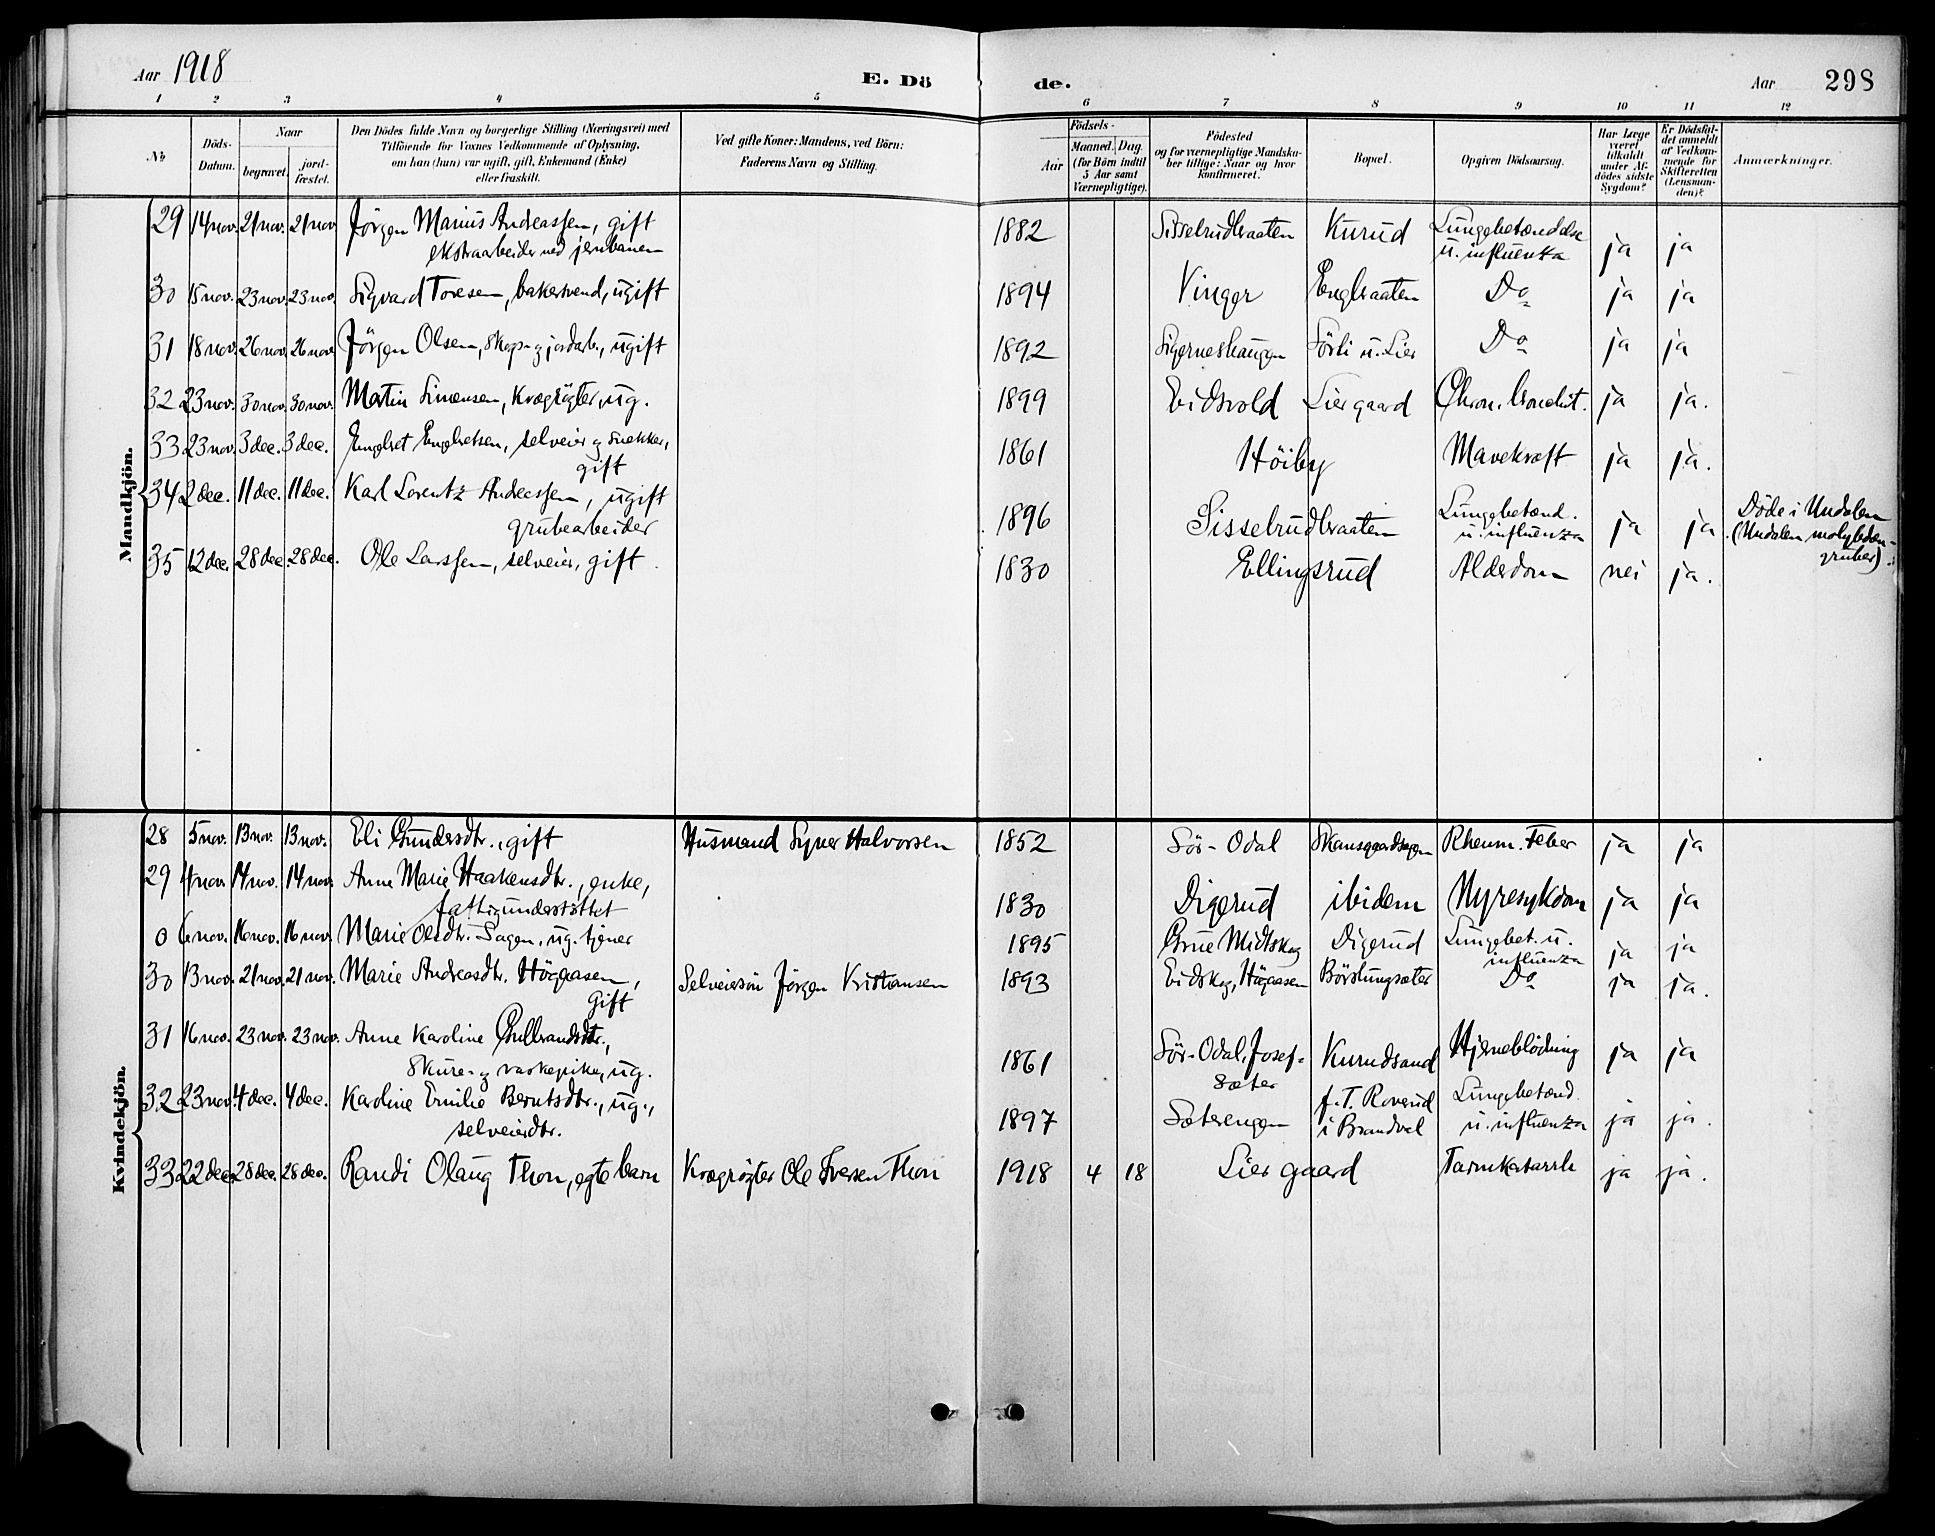 Aar 1918 E. Dö de. Aar 298
1 2 3 4 5 6 7 8 9 10 11 12
No
Döds-Datum.
Naar
begravet.
jord-fæstet.
Den Dödes fulde Navn og borgerlige Stilling (Næringsvei) med
Tilföiende for Voxnes Vedkommende af Oplysning,
om han (hun) var ugift, gift, Enkemand (Enke)
eller fraskilt.
Ved gifte Koner: Mandens, ved Börn:
Faderens Navn og Stilling.
Födsels-
Aar
Maaned. Dag.
(for Börn indtil
5 Aar samt
Værnepligtige).
Födested
og for værnepligtige Mandska-
ber tillige: Naar og hvor
konfirmeret.
Bopæl.
Opgiven Dödsaarsag.
Har Læge
været
tilkaldt
under Af-
dödes sidste
Sygdom?
Er Dödsfal-
det anmeldt
af Vedkom-
mende for
Skifteretten
(Lensman-
den)?
Anmærkninger.
Mandkjön.
29 14 nov. 21 nov. 21 nov Jörgen Marius Andreassen, gift 1882 Sisselrudbraaten Kurud Lungebetændelse
ekstraarbeider ved jernbanen u. influenza ja ja
30 15 nov. 23 nov. 23 nov Sigvard Toresen, bakersvend, ugift 1894 Vinger Englraaten Do ja ja
31 18 nov. 26 nov. 26 nov Jörgen Olsen, skogs- og jordarb., ugift 1892 Sigerneshaugen Sörli u. Lier Do ja ja
32 23 nov. 30 nov. 30 nov. Martin Simensen, Krægrögter, ug. 1899 Eidsvold Lier gaard Chron. bronchit. ja ja.
33 23 nov. 3 dec. 3 dec. Engebret Engebretsen, selveier og snekker, 1861 Höiby Mavekræft ja ja.
gift
34 2 dec. 11 dec. 11 dec. Karl Lorentz Andreassen, ugift 1896 Sisselrudbraaten Lungebetænd. ja ja. Döde i Undalen
grubearbeider u. influenza (Undalen molybdæn-
gruber).
35 12 dec. 28 dec. 28 dec. Ole Larssen, selveier, gift 1830 Ellingsrud Alderdom nei ja.
Kvindekjön.
28 5 nov. 13 nov. 13 nov. Eli Gundersdtr., gift Husmand Syver Halvorsen 1852 Sör-Odal Skansgaardsagen Rheum. Feber ja ja
29 4 nov 14 nov. 14 nov. Anne Marie Haakensdtr., enke,
fattigunderstöttet 1830 Digerud ibidem Nyresykdom ja ja
0 6 nov. 16 nov. 16 nov. Marie Olsdtr. Sagen, ug. tjener 1895 Grue Midtskog Digerud Lungebet. u.
influenza ja ja
30 13 nov. 21 nov. 21 nov. Marie Andreasdtr. Högaasen, Selveiersön Jörgen Kristiansen 1893 Eidskog, Högaasen Börstungsæter Do ja ja.
gift
31 16 nov. 23 nov. 23 nov. Anne Karoline Gulbrandsdtr.,
skure- og vaskepike, ug. 1861 Sör-Odal, Josef-
sæter Kurudsand Hjerneblödning ja ja
32 23 nov. 4 dec. 4 dec. Karoline Emilie Berntsdtr., ug., f. T. Roverud Lungebetænd.
selveierdtr. 1897 Sæterengen i Brandval u. influenza ja ja.
33 22 dec. 28 dec. 28 dec. Randi Olaug Thon, egte barn Krægrögter Ole Iversen Thon 1918 4 18 Lier gaard Tarmkatarrh ja ja.